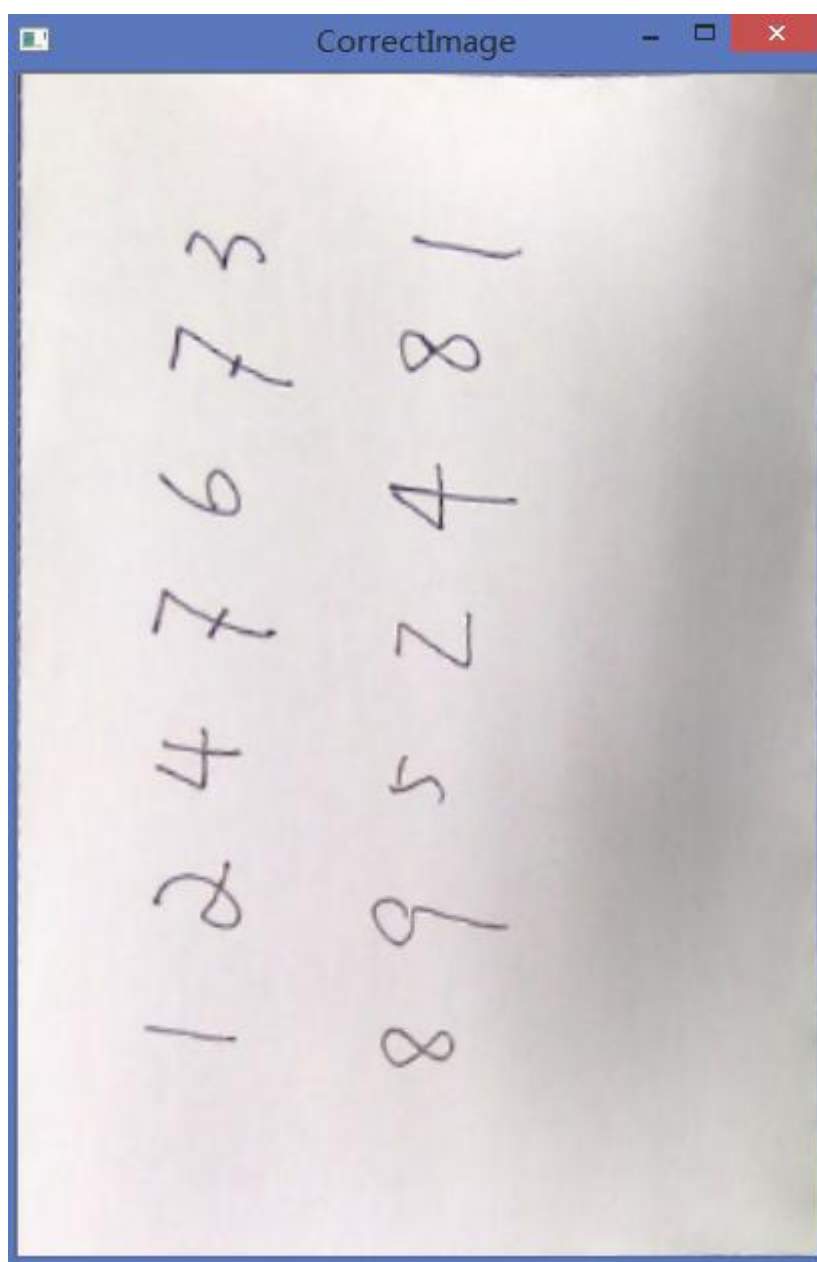 CorrectImage
1 2 4 7 6 7 3
8 9 5 2 4 8 1